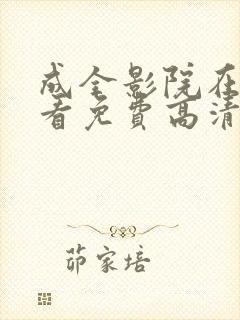 成全影院在
看免费高清
茆家培